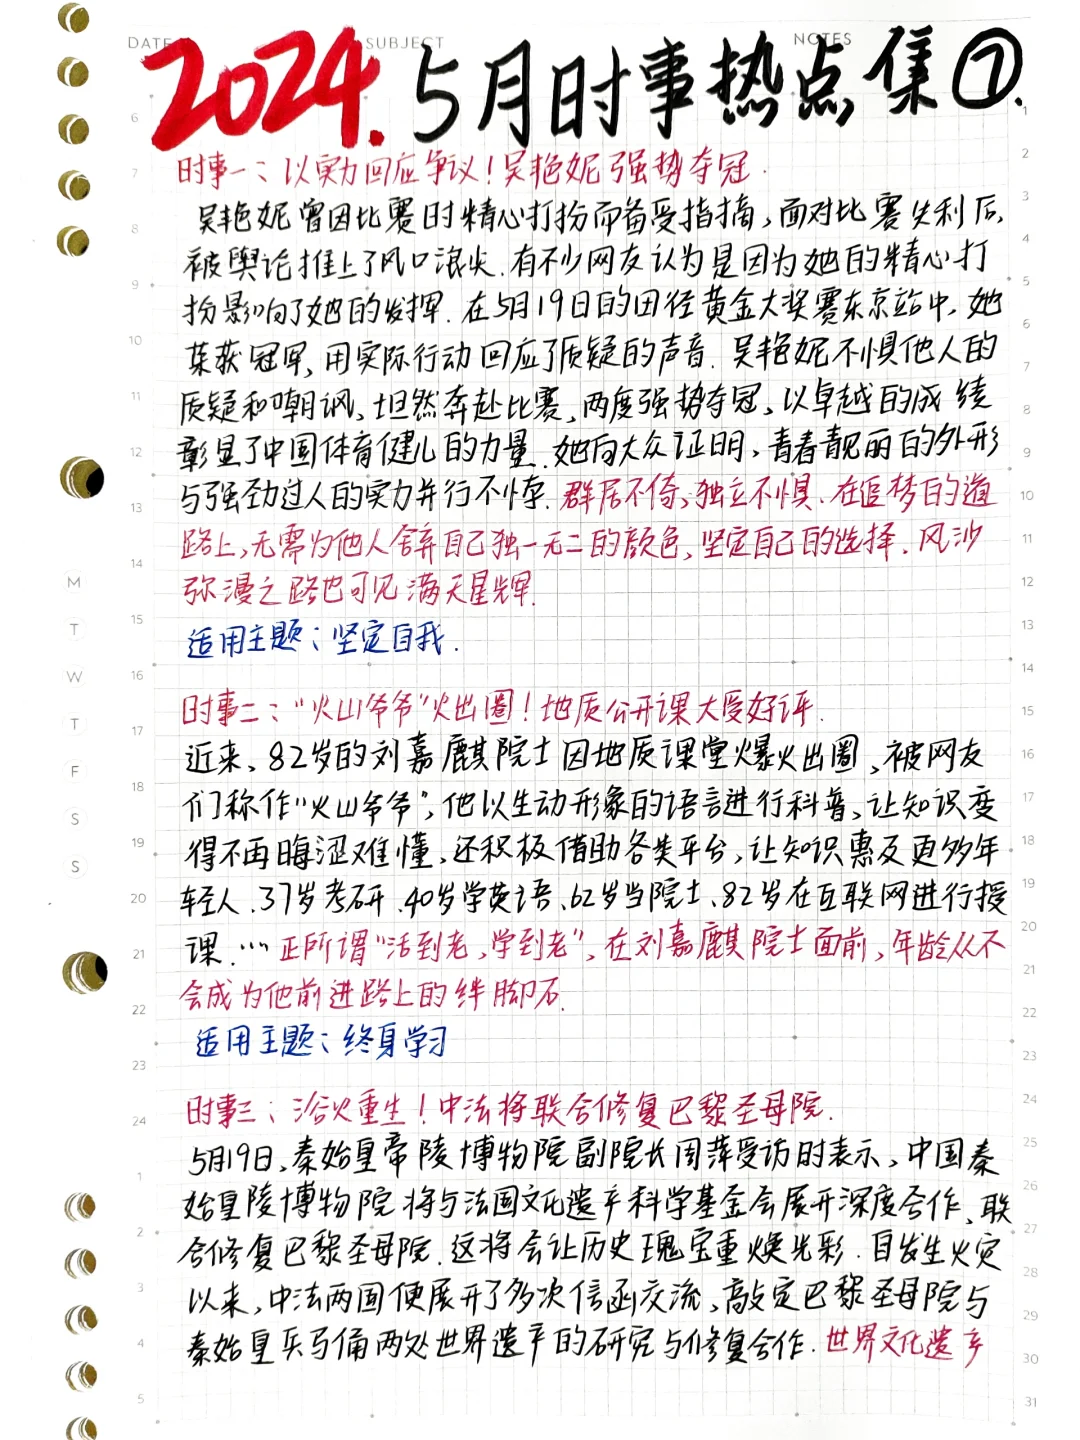 DATE SUBJECT NOTES
2024.5月时事热点集①.
时事一：以实力回应争议！吴艳妮强势夺冠.
吴艳妮曾因比赛时精心打扮而备受指摘，面对比赛失利后，
被舆论推上了风口浪尖.有不少网友认为是因为她的精心打
扮影响了她的发挥.在5月19日的田径黄金大奖赛东京站中，她
荣获冠军，用实际行动回应了质疑的声音.吴艳妮不惧他人的
质疑和嘲讽，坦然奔赴比赛，两度强势夺冠，以卓越的成绩
彰显了中国体育健儿的力量.她向大众证明，青春靓丽的外形
与强劲过人的实力并行不悖.群居不倚，独立不惧.在追梦的道
路上，无需为他人舍弃自己独一无二的颜色，坚定自己的选择.风沙
弥漫之路也可见满天星辉.
适用主题：坚定自我.
时事二：“火山爷爷”火出圈！地质公开课大受好评.
近来，82岁的刘嘉麒院士因地质课堂爆火出圈，被网友
们称作“火山爷爷”，他以生动形象的语言进行科普，让知识变
得不再晦涩难懂，还积极借助各类平台，让知识惠及更多年
轻人.37岁考研、40岁学英语、62岁当院士、82岁在互联网进行授
课.…正所谓“活到老，学到老”，在刘嘉麒院士面前，年龄从不
会成为他前进路上的绊脚石.
适用主题：终身学习
时事三：浴火重生！中法将联合修复巴黎圣母院.
5月19日，秦始皇帝陵博物院副院长周萍受访时表示，中国秦
始皇陵博物院将与法国文化遗产科学基金会展开深度合作，联
合修复巴黎圣母院.这将会让历史瑰宝重焕光彩.自发生火灾
以来，中法两国便展开了多次信函交流，敲定巴黎圣母院与
秦始皇兵马俑两处世界遗产的研究与修复合作.世界文化遗产
M
T
W
T
F
S
S
6
7
8
9
10
11
12
13
14
15
16
17
18
19
20
21
22
23
24
1
2
3
4
5
1
2
3
4
5
6
7
8
9
10
11
12
13
14
15
16
17
18
19
20
21
22
23
24
25
26
27
28
29
30
31